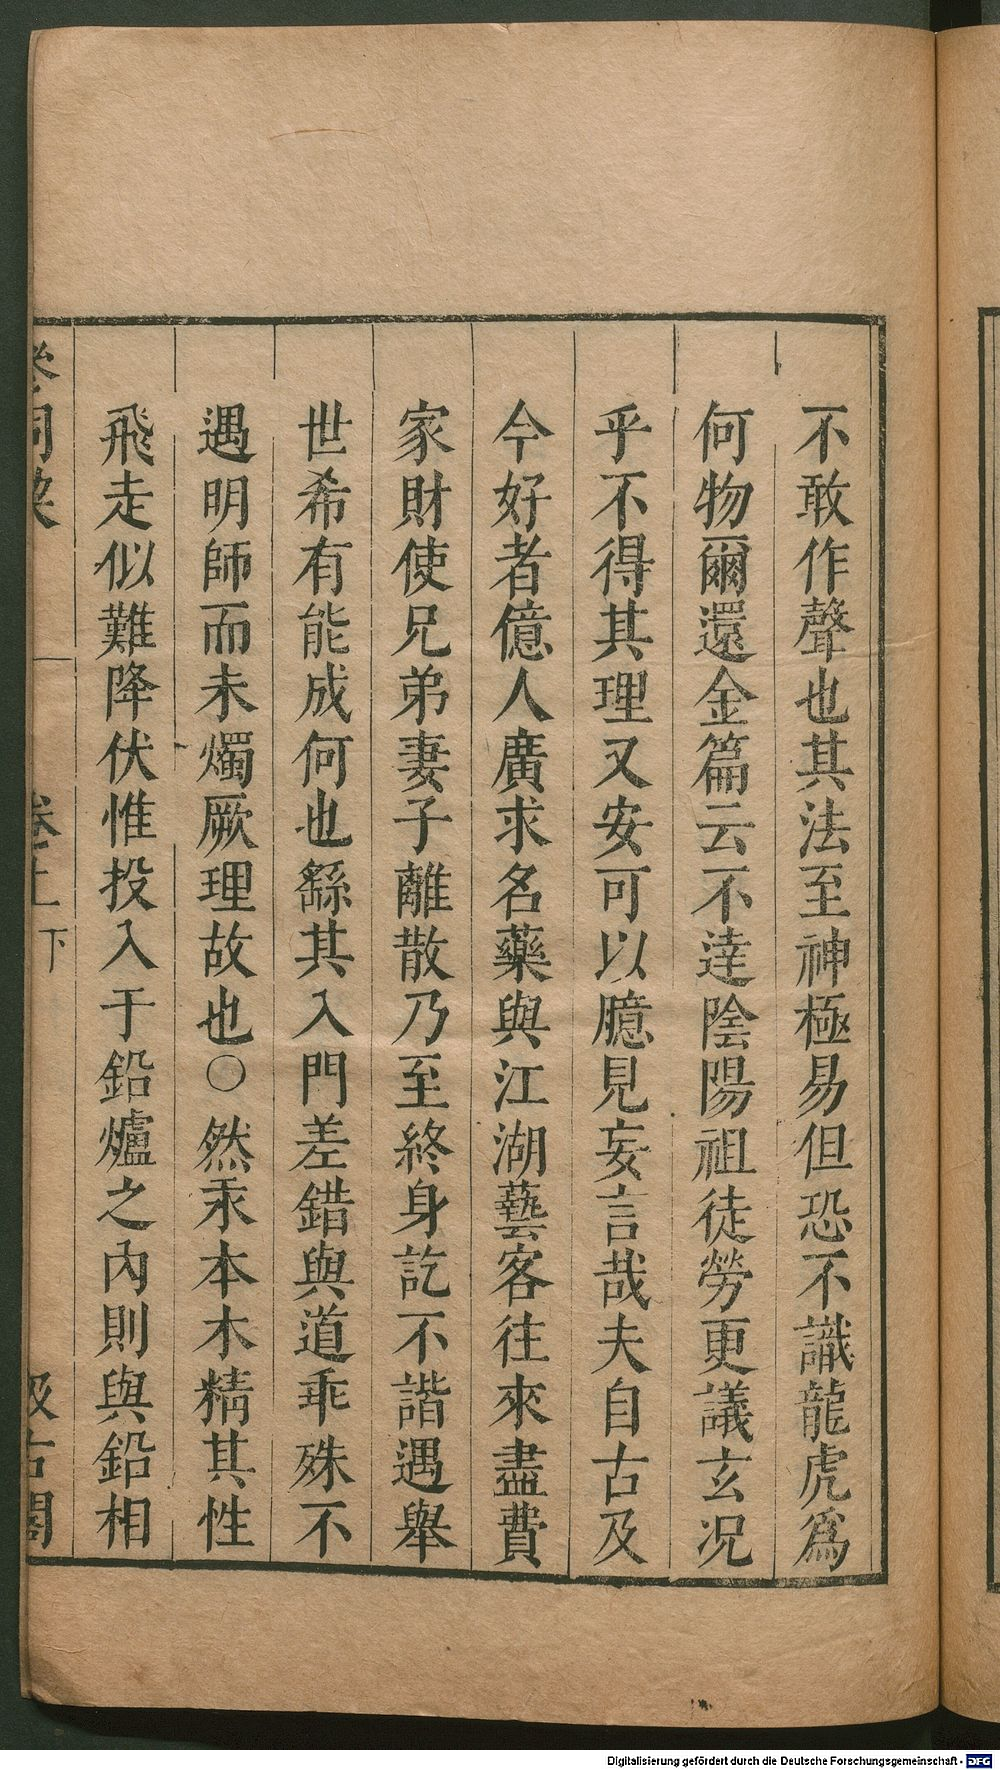 不敢作聲也其法至神極易但恐不識龍虎爲
何物爾還金篇云不達陰陽祖徒勞更議玄况
乎不得其理又安可以臆見妄言哉夫自古及
今好者億人廣求名藥與江湖藝客往來盡費
家財使兄弟妻子離散乃至終身訖不諧遇舉
世希有能成何也繇其入門差錯與道乖殊不
遇明師而未燭厥理故也○然汞本木精其性
飛走似難降伏惟投入于鉛爐之內則與鉛相
卷上 下
汲古閣
Digitalisierung gefördert durch die Deutsche Forschungsgemeinschaft - DFG